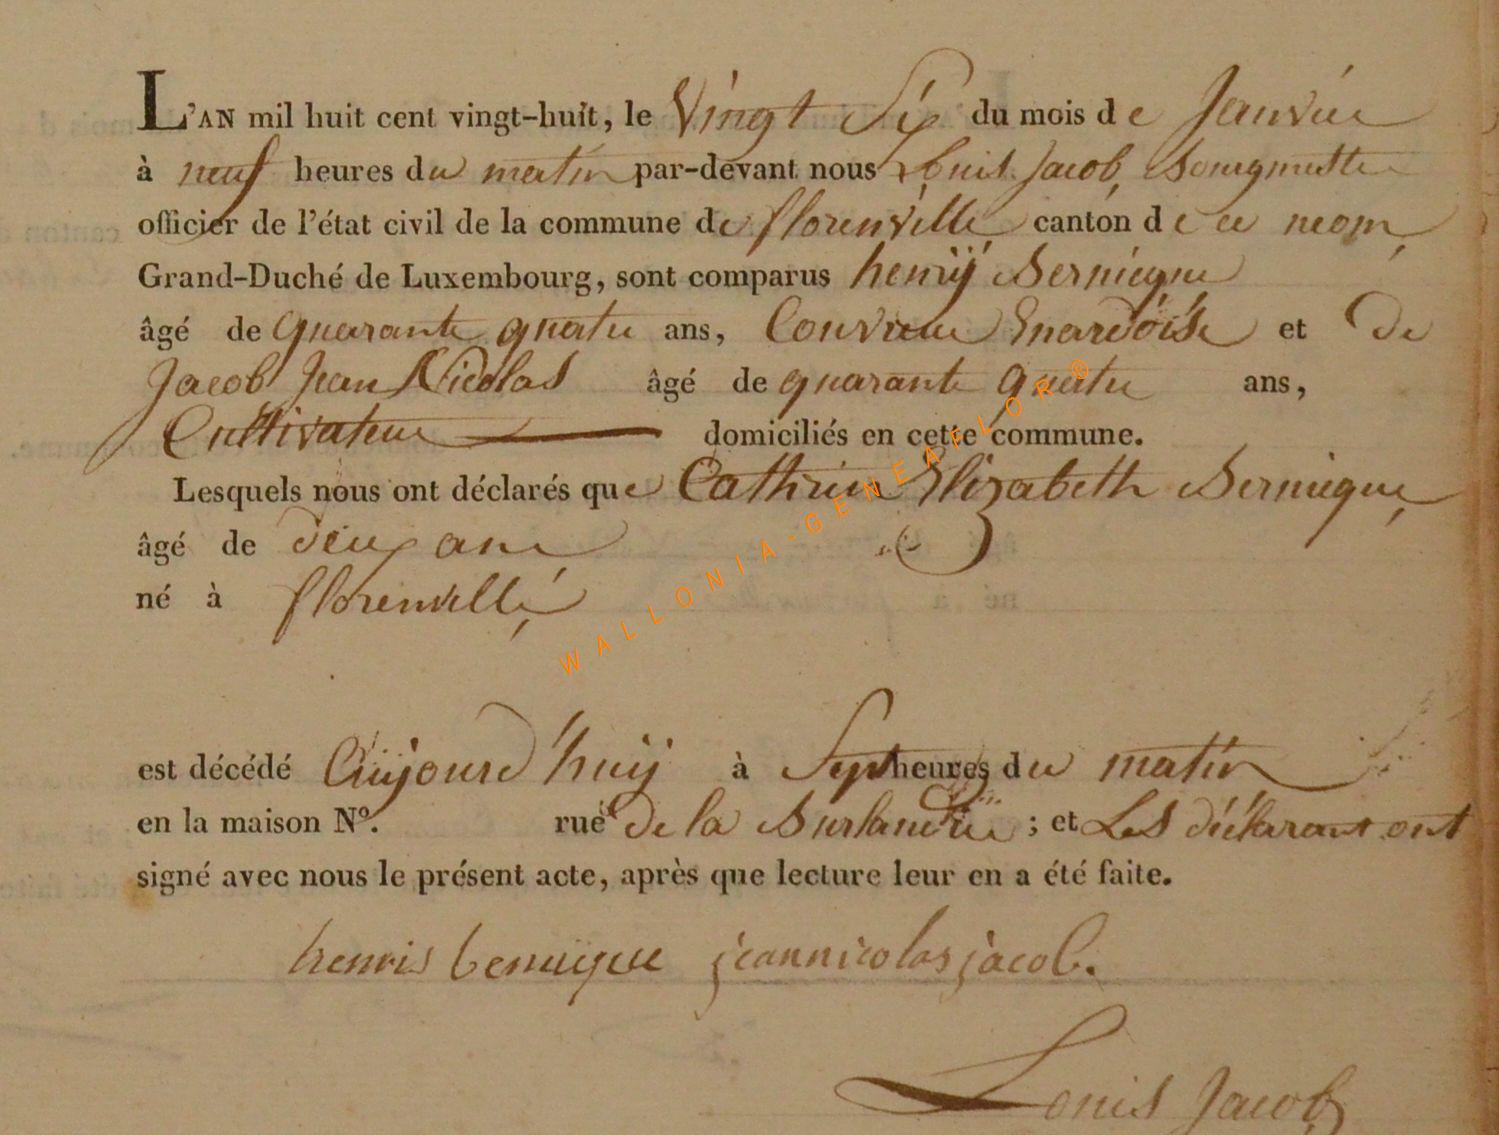 L'AN mil huit cent vingt-huit, le Vingt Six du mois de Janvier
à neuf heures du matin par-devant nous Louis Jacob, Bourgmettre
officier de l'état civil de la commune de florenville canton de ce nom,
Grand-Duché de Luxembourg, sont comparus henrÿ Bernique
âgé de quarante quatre ans, Couvreur Enardoise et De
Jacob Jean Nicolas âgé de quarante quatre ans,
Cultivateur domiciliés en cette commune.
Lesquels nous ont déclarés que Cathrine Elizabeth Bernique,
âgé de deux ans
né à florenville,
est décédé Aujourd'huÿ à Sept heures du matin
en la maison N°. rue de la ; et Les déclarant ont
signé avec nous le présent acte, après que lecture leur en a été faite.
henris bernique jean nicolas jacob.
Louis Jacob
WALLONIA-GENEAFLOR®